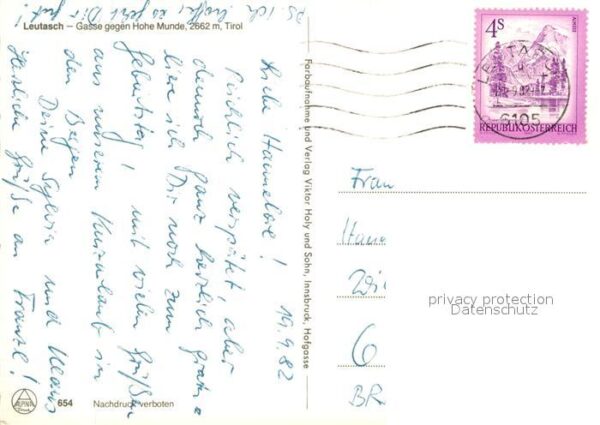 Leutasch – Gasse gegen Hohe Munde, 2662 m, Tirol
PS ich hoffe, es geht Dir gut!
19.9.82
Liebe Hannelore!
Reichlich verspätet, aber
dennoch ganz herzlich gratu =
liere ich Dir noch zum
Geburtstag! mit vielen Grüßen
aus unserem Kurzurlaub in
den Bergen
Deine Sylvia und Klaus
Herzliche Grüße an Franzl!
654 Nachdruck verboten
Farbaufnahme und Verlag Viktor Holy und Sohn, Innsbruck, Hofgasse
4S
REPUBLIK ÖSTERREICH
6105
Frau
6
BR
privacy protection
Datenschutz